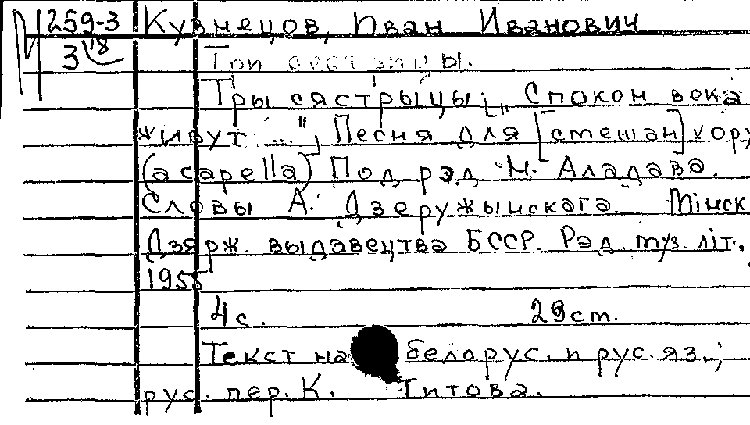 М 259-3 Кузнецов, Иван Иванович
3 18 Три сестрицы.
Тры сястрыцы: „Спокон века
живут ...", Песня для [смешан] хору
(a capella) Под рэд М. Аладава.
Словы А. Дзеружынскага Мінск
Дзярж. выдавецтва БССР. Рэд муз. літ.
1955
4 с. 29 cm.
Текст на белорус. и рус. яз.;
рус. пер. К. Титова.